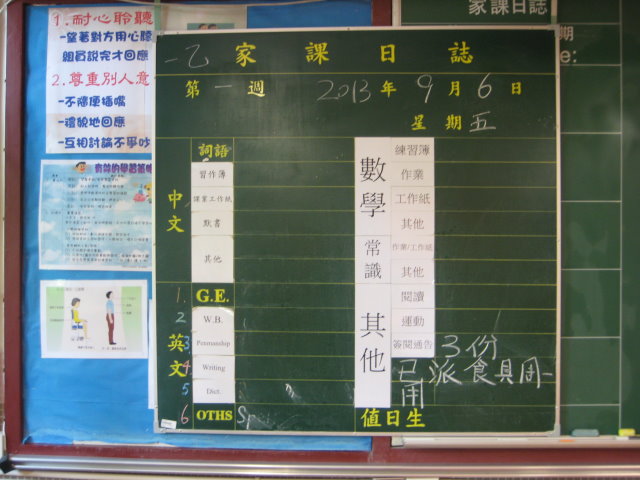 1.耐心聆聽
-望著對方用心聽
組員說完才回應
2.尊重別人意
-不隨便插嘴
-禮貌地回應
-互相討論不爭吵
一乙 家課日誌
第一週 2013年9月6日
星期五
中文
詞語
習作簿
課業工作紙
默書
其他
英文
1. G.E.
2 W.B.
3 Penmanship
4 Writing
5 Dict.
6 OTHS
數學
練習簿
作業
工作紙
其他
常識
作業/工作紙
其他
其他
閱讀
運動
簽閱通告 3份
已派食具周一用
值日生
家課日誌
期
e: